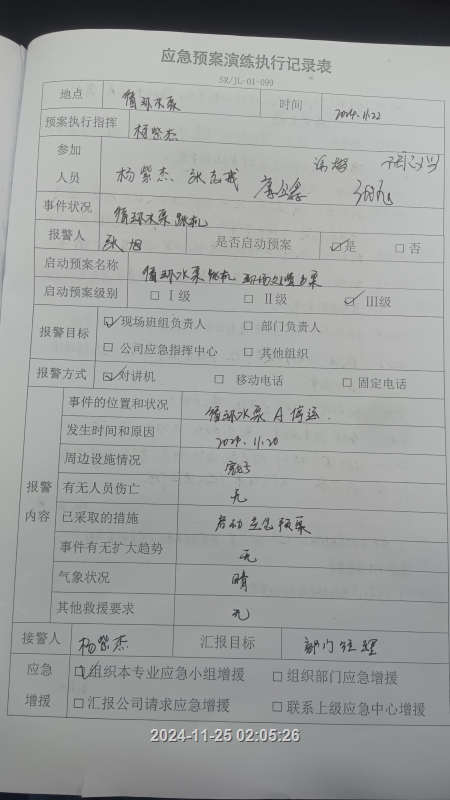 应急预案演练执行记录表
SR/JL-01-099
地点 循环水泵 时间 2024.11.22
预案执行指挥 杨紫杰
参加人员 杨紫杰、张志成
事件状况 循环水泵跳机
报警人 张旭 是否启动预案 ☑是 □否
启动预案名称 循环水泵跳机现场处置方案
启动预案级别 □Ⅰ级 □Ⅱ级 ☑Ⅲ级
报警目标 ☑现场班组负责人 □部门负责人
□公司应急指挥中心 □其他组织
报警方式 ☑对讲机 □移动电话 □固定电话
报警内容
事件的位置和状况 循环水泵A停运.
发生时间和原因 2024.11.20
周边设施情况 完好
有无人员伤亡 无
已采取的措施 启动应急预案
事件有无扩大趋势 无
气象状况 晴
其他救援要求 无
接警人 杨紫杰 汇报目标 部门经理
应急增援 ☑组织本专业应急小组增援 □组织部门应急增援
□汇报公司请求应急增援 □联系上级应急中心增援
2024-11-25 02:05:26